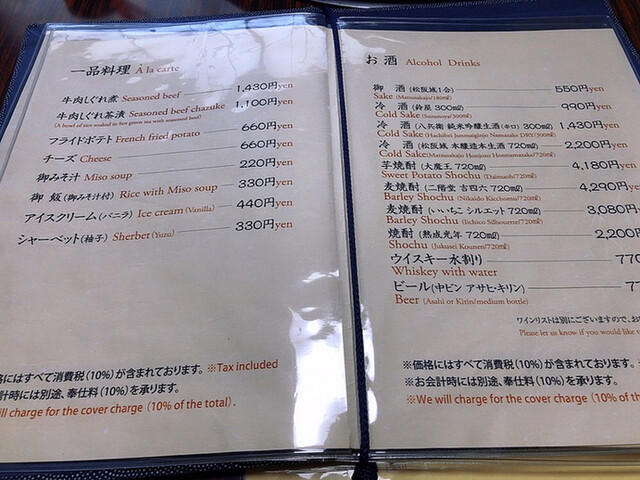 一品料理 À la carte
牛肉しぐれ煮 Seasoned beef 1,430円yen
牛肉しぐれ茶漬 Seasoned beef chazuke 1,100円yen
(A bowl of rice soaked in hot green tea with seasoned beef)
フライドポテト French fried potato 660円yen
チーズ Cheese 660円yen
御みそ汁 Miso soup 220円yen
御飯(御みそ汁付) Rice with Miso soup 330円yen
アイスクリーム(バニラ) Ice cream (Vanilla) 440円yen
シャーベット(柚子) Sherbet (Yuzu) 330円yen
格にはすべて消費税(10%)が含まれております。※Tax included
計時には別途、奉仕料(10%)を承ります。
ill charge for the cover charge (10% of the total).
お酒 Alcohol Drinks
御 酒 (松阪城1合) 550円yen
Sake (Matsusakajo/180㎖)
冷 酒 (鈴屋 300㎖) 990円yen
Cold Sake (Suzunoya/300㎖)
冷 酒 (八兵衛 純米吟醸生酒(辛口) 300㎖) 1,430円yen
Cold Sake (Hachibei Junmaiginjo Namazake DRY/300㎖)
冷 酒 (松阪城 本醸造本生酒 720㎖) 2,200円yen
Cold Sake (Matsusakajo Honjozo Honnamazake/720㎖)
芋焼酎 (大魔王 720㎖) 4,180円yen
Sweet Potato Shochu (Daimaoh/720㎖)
麦焼酎 (二階堂 吉四六 720㎖) 4,290円yen
Barley Shochu (Nikaido Kicchomu/720㎖)
麦焼酎 (いいちこ シルエット 720㎖) 3,080
Barley Shochu (Iichico Silhouette/720㎖)
焼酎 (熟成光年 720㎖) 2,200
Shochu (Jukusei Kounen/720㎖)
ウイスキー水割り 770
Whiskey with water
ビール(中ビン アサヒ・キリン) 77
Beer (Asahi or Kirin/medium bottle)
ワインリストは別にございますので、お
Please let us know if you would like t
※価格にはすべて消費税(10%)が含まれております。※
※お会計時には別途、奉仕料(10%)を承ります。
※We will charge for the cover charge (10% of th